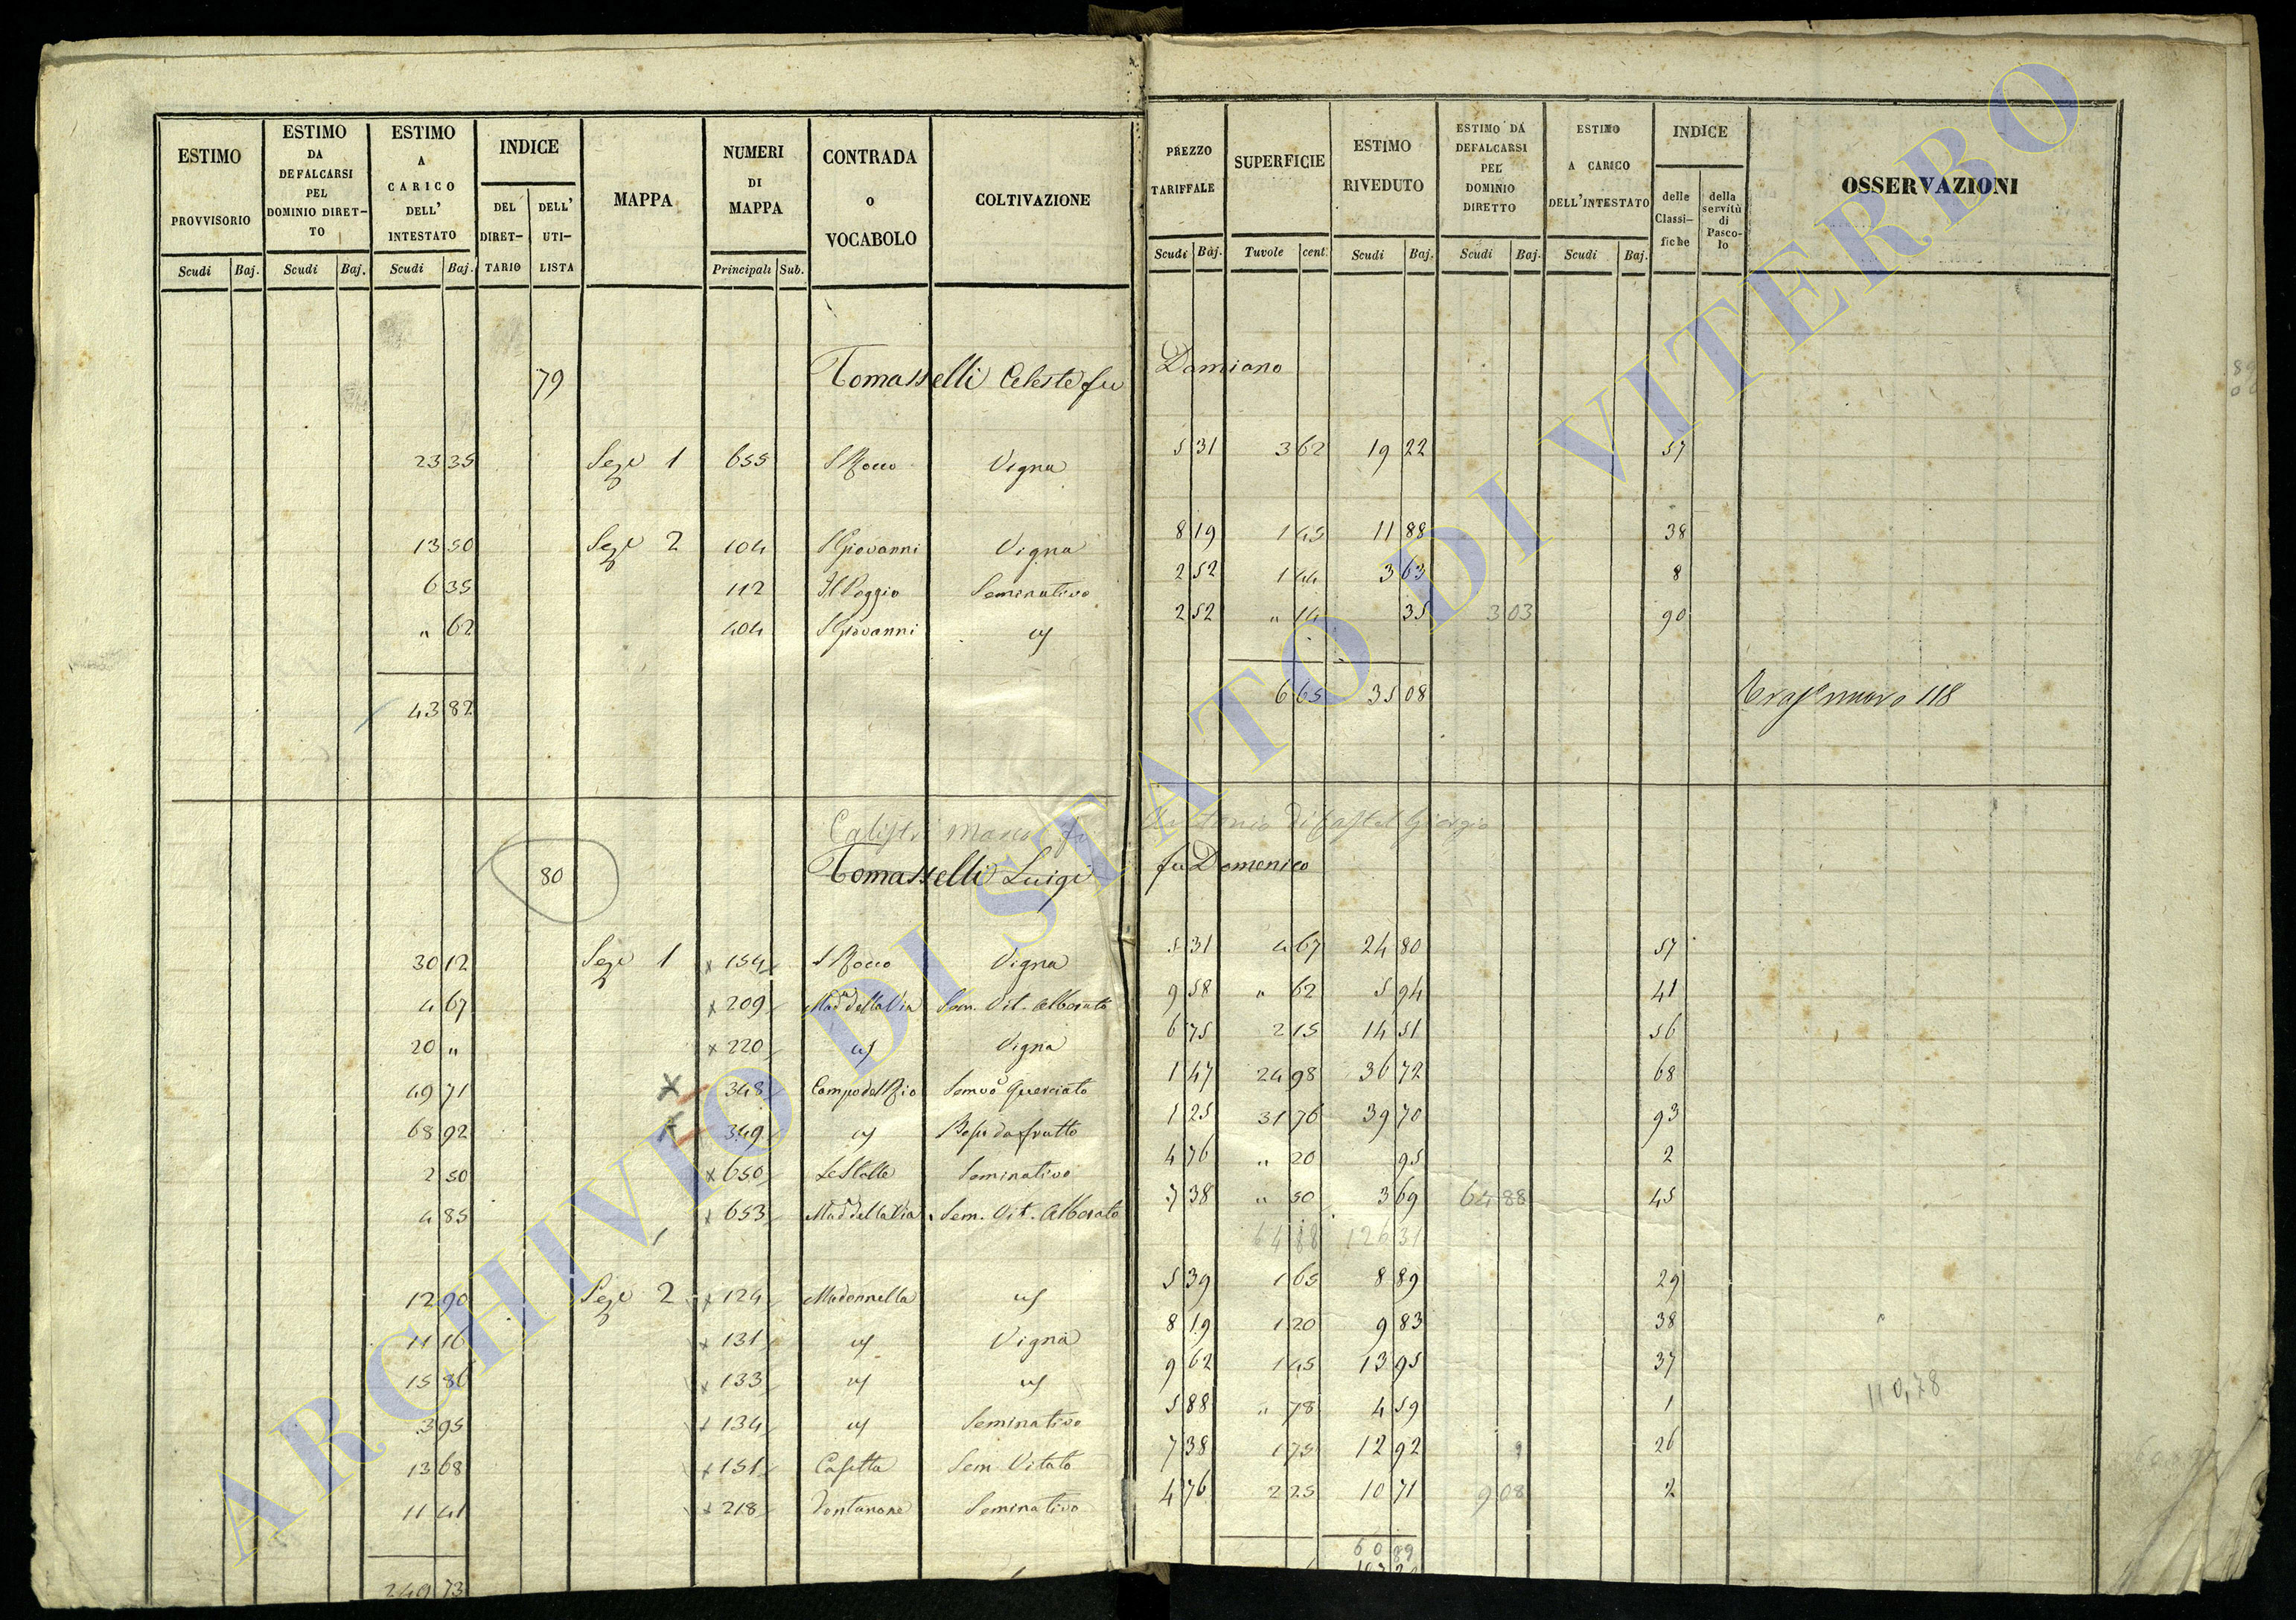 ESTIMO PROVVISORIO
ESTIMO DA DEFALCARSI PEL DOMINIO DIRET-TO
ESTIMO A CARICO DELL' INTESTATO
INDICE
DEL DIRET-TARIO
DELL' UTI-LISTA
MAPPA
NUMERI DI MAPPA
CONTRADA o VOCABOLO
COLTIVAZIONE
PREZZO TARIFFALE
SUPERFICIE
ESTIMO RIVEDUTO
ESTIMO DA DEFALCARSI PEL DOMINIO DIRETTO
ESTIMO A CARICO DELL'INTESTATO
INDICE
delle Classi-fiche
della servitù di Pasco-lo
OSSERVAZIONI
Scudi Baj. Scudi Baj. Scudi Baj. Principali Sub. Scudi Baj. Tavole cent. Scudi Baj. Scudi Baj. Scudi Baj.
79 Tomasselli Celeste fu Damiano
23 35 Seze 1 655 S Rocco Vigna 5 31 3 62 19 22 57
13 50 Seze 2 104 S Giovanni Vigna 8 19 1 45 11 88 38
6 35 112 Il Poggio Seminativo 2 52 1 44 3 63 8
" 62 404 S Giovanni 2 52 " 14 35 3 03 90
43 82 6 65 35 08 118
Calistri Marco fu Antonio di Castel Giorgio
80 Tomasselli Luigi fu Domenico
30 12 Seze 1 154 S Rocco Vigna 5 31 4 67 24 80 57
4 67 209 Mad.a della Via Sem. Vit. Alborato 9 58 " 62 5 94 41
20 " 220 Vigna 6 75 2 15 14 51 56
49 71 348 Campo del Rio Semvo Querciato 1 47 24 98 36 72 68
68 92 349 da frutto 1 25 31 76 39 70 93
2 50 650 Le Stalle Seminativo 4 76 " 20 95 2
4 85 653 Mad.a della Via Sem. Vit. Alborato 7 38 " 50 3 69 64 88 45
64 88 126 31
12 90 Seze 2 124 Madonnella 5 39 1 65 8 89 29
11 16 131 Vigna 8 19 1 20 9 83 38
15 86 133 9 62 1 45 13 95 37
3 95 134 Seminativo 5 88 " 78 4 59 1
110,78
13 68 151 Casetta Sem Vitato 7 38 1 75 12 92 26
11 41 218 Fontanone Seminativo 4 76 2 25 10 71 9 08 2
60 89
249 73
ARCHIVIO DI STATO DI VITERBO